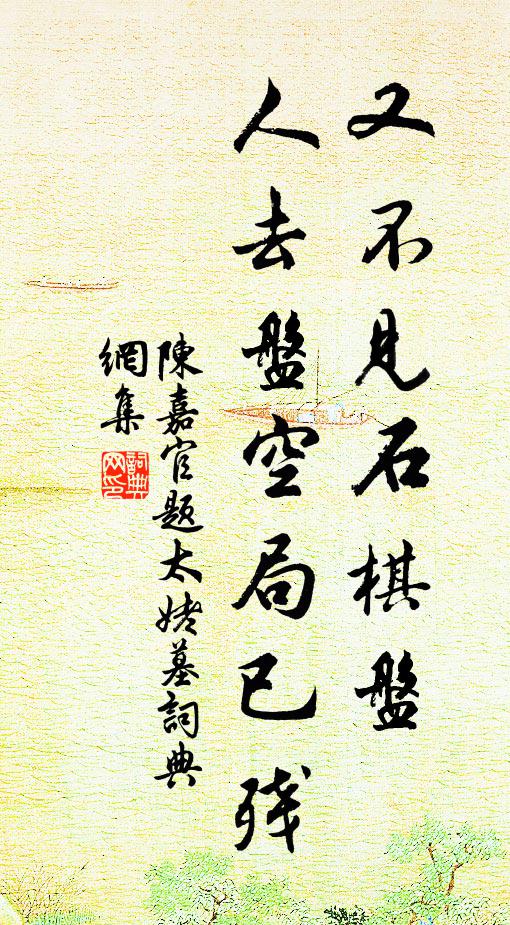 又不見石棋盤
人去盤空局已残
陳嘉官題太姥墓詞典
網集
詞典
网印